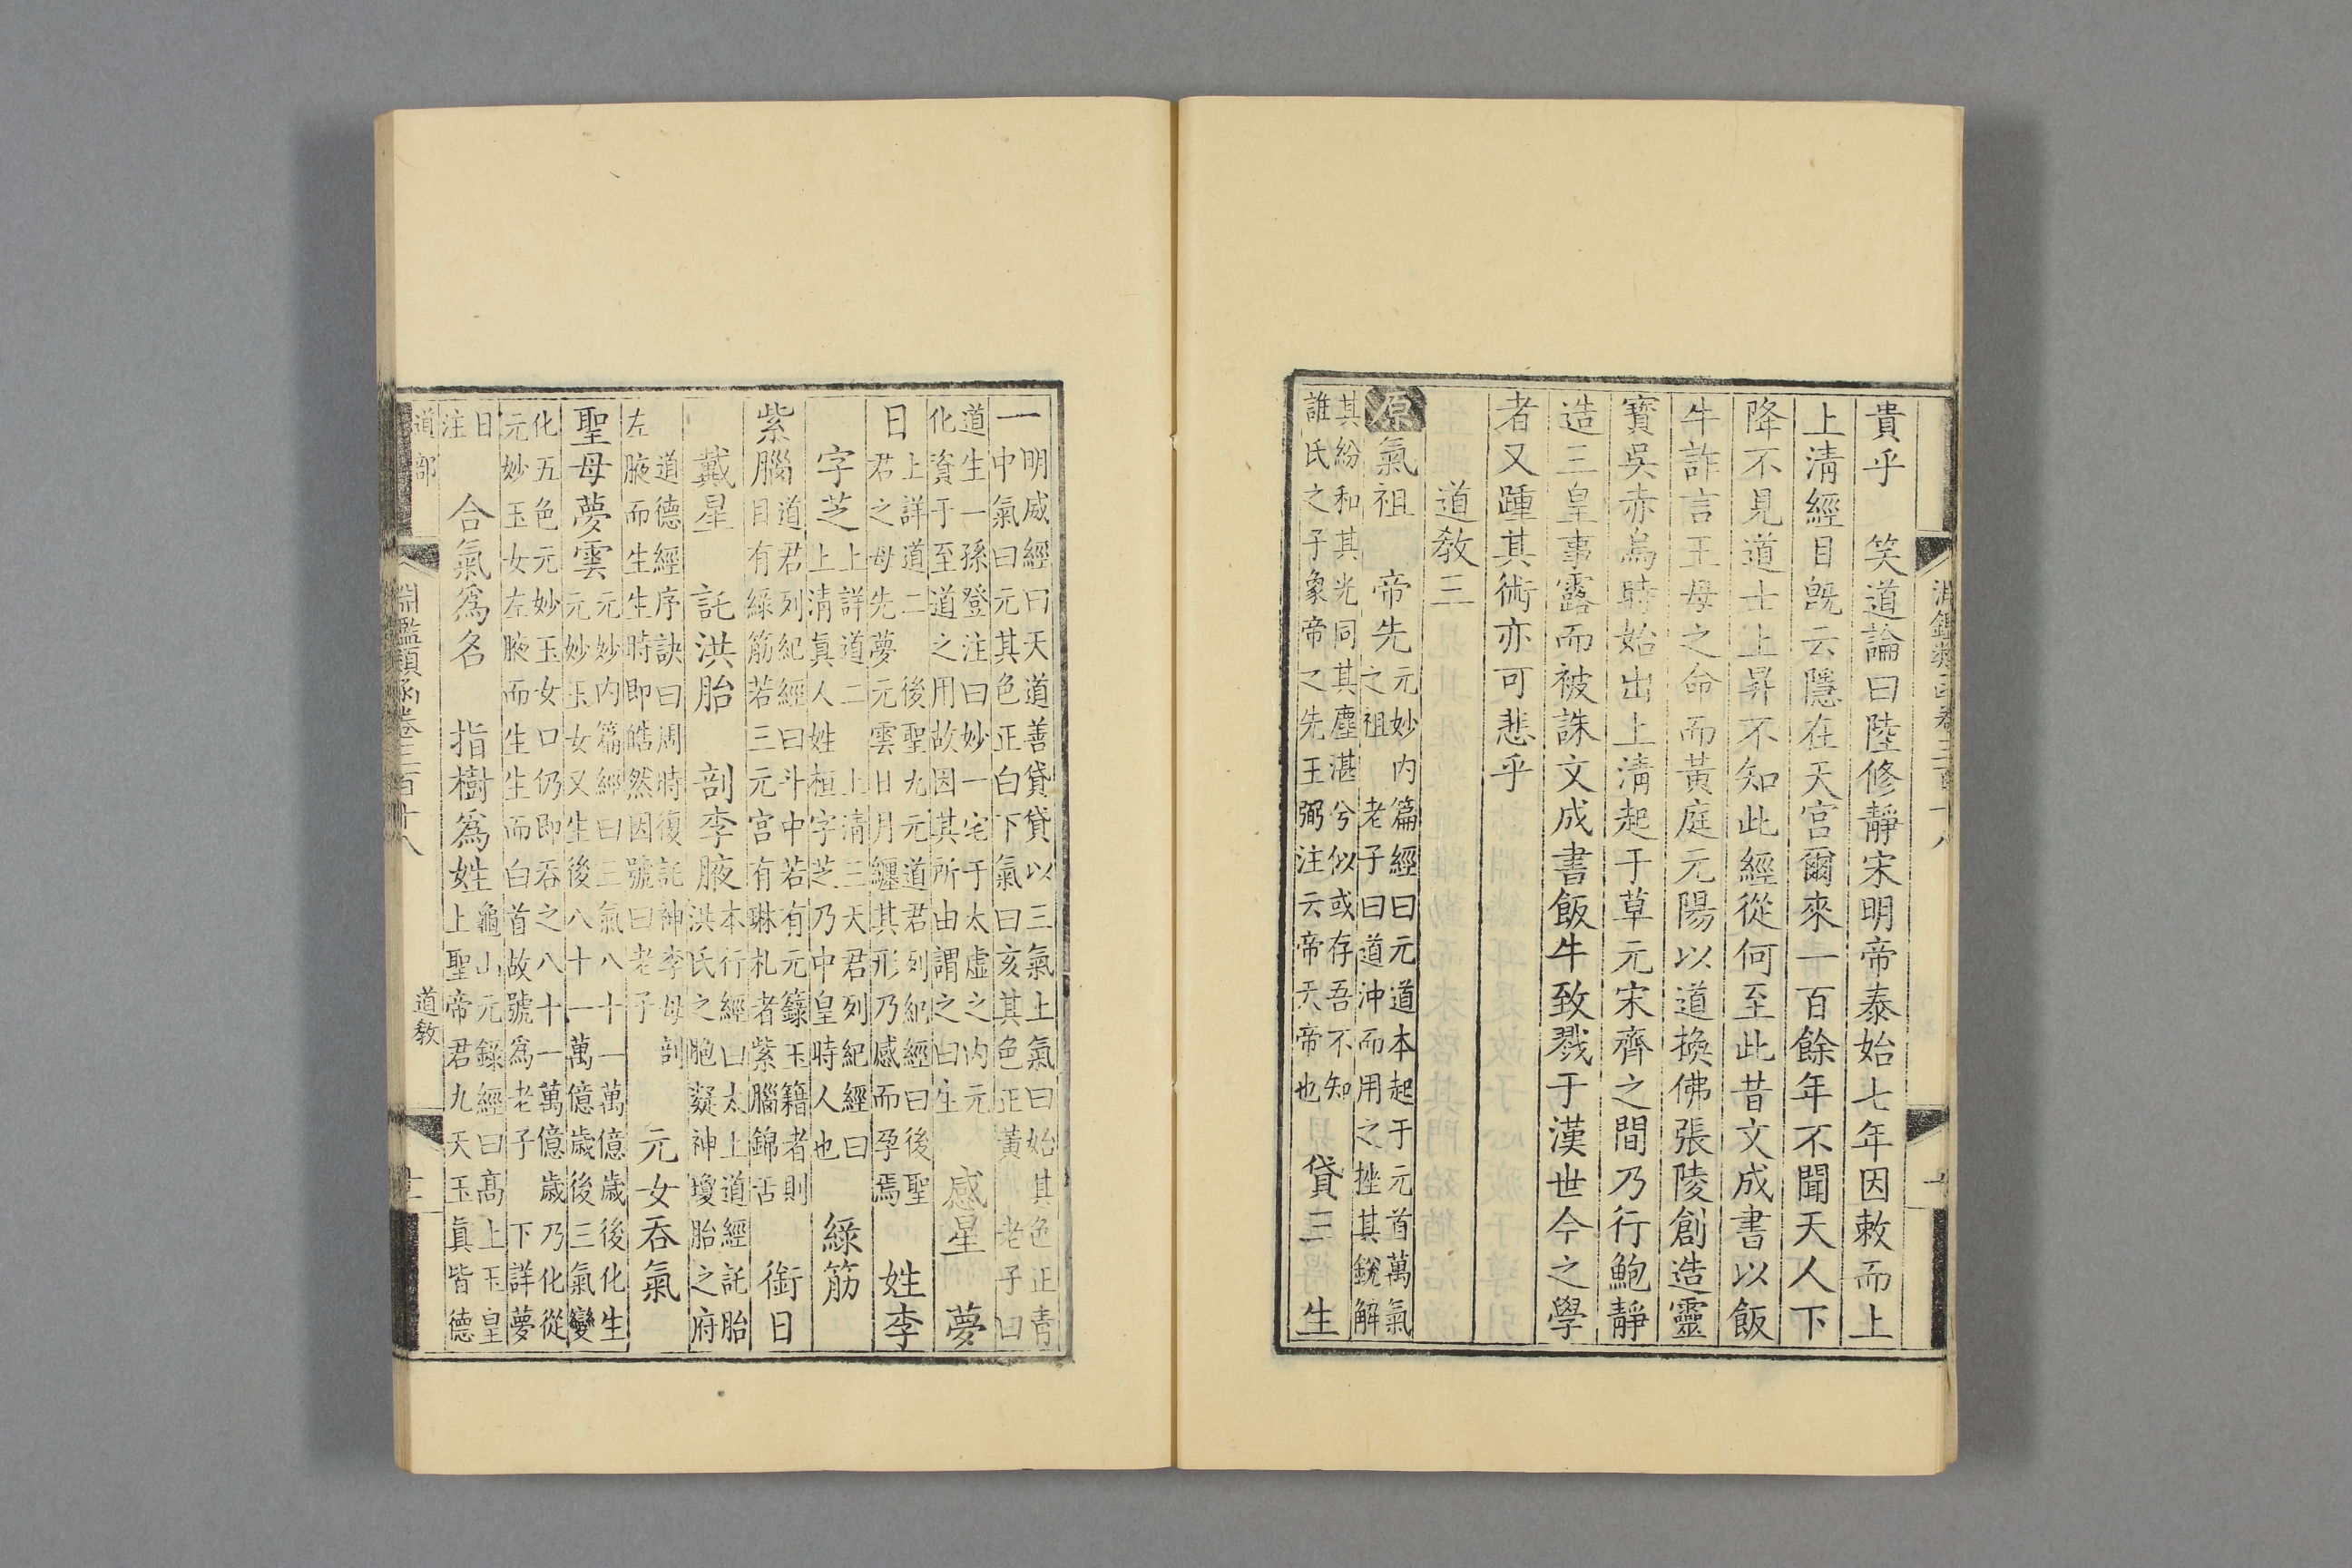 貴乎 笑道論曰陸修靜宋明帝泰始七年因敕而上
上清經目旣云隱在天宮爾來一百餘年不聞天人下
降不見道士上昇不知此經從何至此昔文成書以飯
牛詐言王母之命而黃庭元陽以道換佛張陵創造靈
寶吳赤烏時始出上清起于草元宋齊之間乃行鮑靜
造三皇事露而被誅文成書飯牛致戮于漢世今之學
者又踵其術亦可悲乎
道敎三
原氣祖 帝先元妙內篇經曰元道本起于元首萬氣
之祖 老子曰道沖而用之挫其銳解
其紛和其光同其塵湛兮似或存吾不知
誰氏之子象帝之先王弼注云帝天帝也 貸三 生
一明威經曰天道善貸貸以三氣上氣曰始其色正青
中氣曰元其色正白下氣曰亥其色正黃 老子曰
道生一孫登注曰妙一宅于太虛之內元
化資于至道之用故因其所由謂之曰生 感星 夢
日上詳道二 後聖九元道君列紀經曰後聖
君之母先夢元雲日月纏其形乃感而孕焉 姓李
字芝上詳道二 上清三天君列紀經曰
上清眞人姓桓字芝乃中皇時人也 綠筋
紫腦道君列紀經曰斗中若有元籙玉籍者則
目有綠筋若三元宮有琳札者紫腦錦舌 銜日
戴星 託洪胎 剖李腋本行經曰太上道經託胎
洪氏之胞凝神瓊胎之府
道德經序訣曰周時復託神李母剖
左腋而生生時即皓然因號曰老子 元女吞氣
聖母夢雲元妙內篇經曰三氣八十一萬億歲後化生
元妙玉女又生後八十一萬億歲後三氣變
化五色元妙玉女口仍即吞之八十一萬億歲乃化從
元妙玉女左腋而生生而白首故號爲老子 下詳夢
日
注 合氣爲名 指樹爲姓龜山元錄經曰高上玉皇
上聖帝君九天玉眞皆德
道部 淵鑑類函卷三百十八 道敎